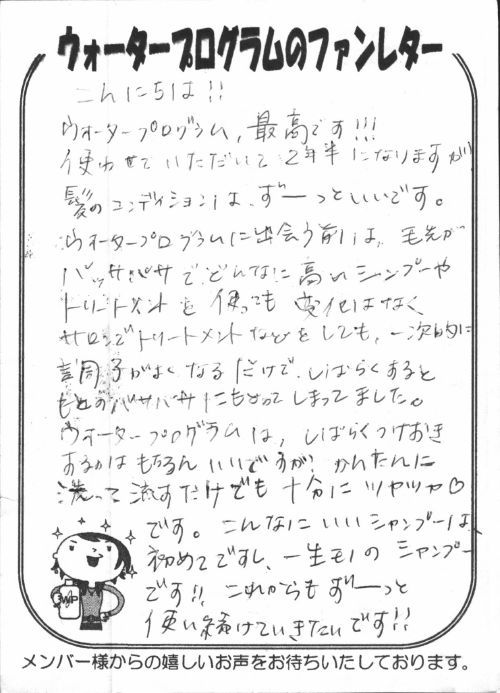 ウォータープログラムのファンレター
こんにちは!!
ウォータープログラム,最高です!!!
使わせていただいて2年半になりますが
髪のコンディションは、ずーーっといいです。
ウォータープログラムに出会う前は、毛先が
バッサバサで、どんなに高いシャンプーや
トリートメントを使っても変化はなく
サロンでトリートメントなどをしても、一次的に
調子がよくなるだけで、しばらくすると
もとのバサバサにもどってしまってました。
ウォータープログラムは、しばらくつけおき
するのはもちろんいいですが、かんたんに
洗って流すだけでも十分にツヤツヤ♡
です。こんなにいいシャンプーは、
初めてですし、一生モノのシャンプー
です!!これからもずーーっと
使い続けていきたいです!!
WP
メンバー様からの嬉しいお声をお待ちいたしております。